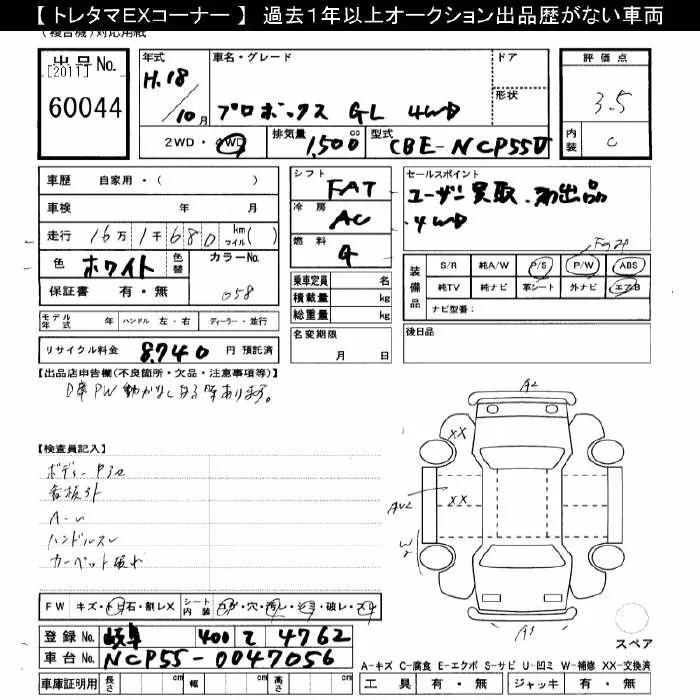 【 トレタマEXコーナー 】 過去1年以上オークション出品歴がない車両
(複合機)対応用紙
出品No.
[2011]
60044
年式
H.18
10月
車名・グレード
プロボックス GL 4WD
ドア
形状
評価点
3.5
内装
C
2WD・4WD
排気量
1,500 cc
型式
CBE-NCP55V
車歴 自家用・( )
車検 年 月
走行 16万1千680 km マイル( )
色 ホワイト 色替 カラーNo.
058
保証書 有・無
シフト FAT
冷房 AC
燃料 G
乗車定員 名
積載量 kg
総重量 kg
セールスポイント
ユーザー買取・初出品
・4WD
装備品
S/R 純A/W P/S P/W ABS
純TV 純ナビ 革シート 外ナビ エアB
ナビ型番:
モデル年式 年 ハンドル 左・右 ディーラー・並行
リサイクル料金 8,740 円 預託済
名変期限
月 日
後日品
【出品店申告欄(不良箇所・欠品・注意事項等)】
D席PW動かなくなる時あります。
【検査員記入】
ボディー
看板跡
ハンドルスレ
カーペット破れ
A2
XX
XX
AU2
W2
FW キズ・トビ石・割レX シート内装 コゲ・穴・汚レ・シミ・破レ・スレ
登録No. 岐阜 400 て 4762
車台No. NCP55-0047056
スペア
A-キズ C-腐食 E-エクボ S-サビ U-凹ミ W-補修 XX-交換済
車庫証明用 長さ cm 幅 cm 高さ cm
工具 有・無 ジャッキ 有・無